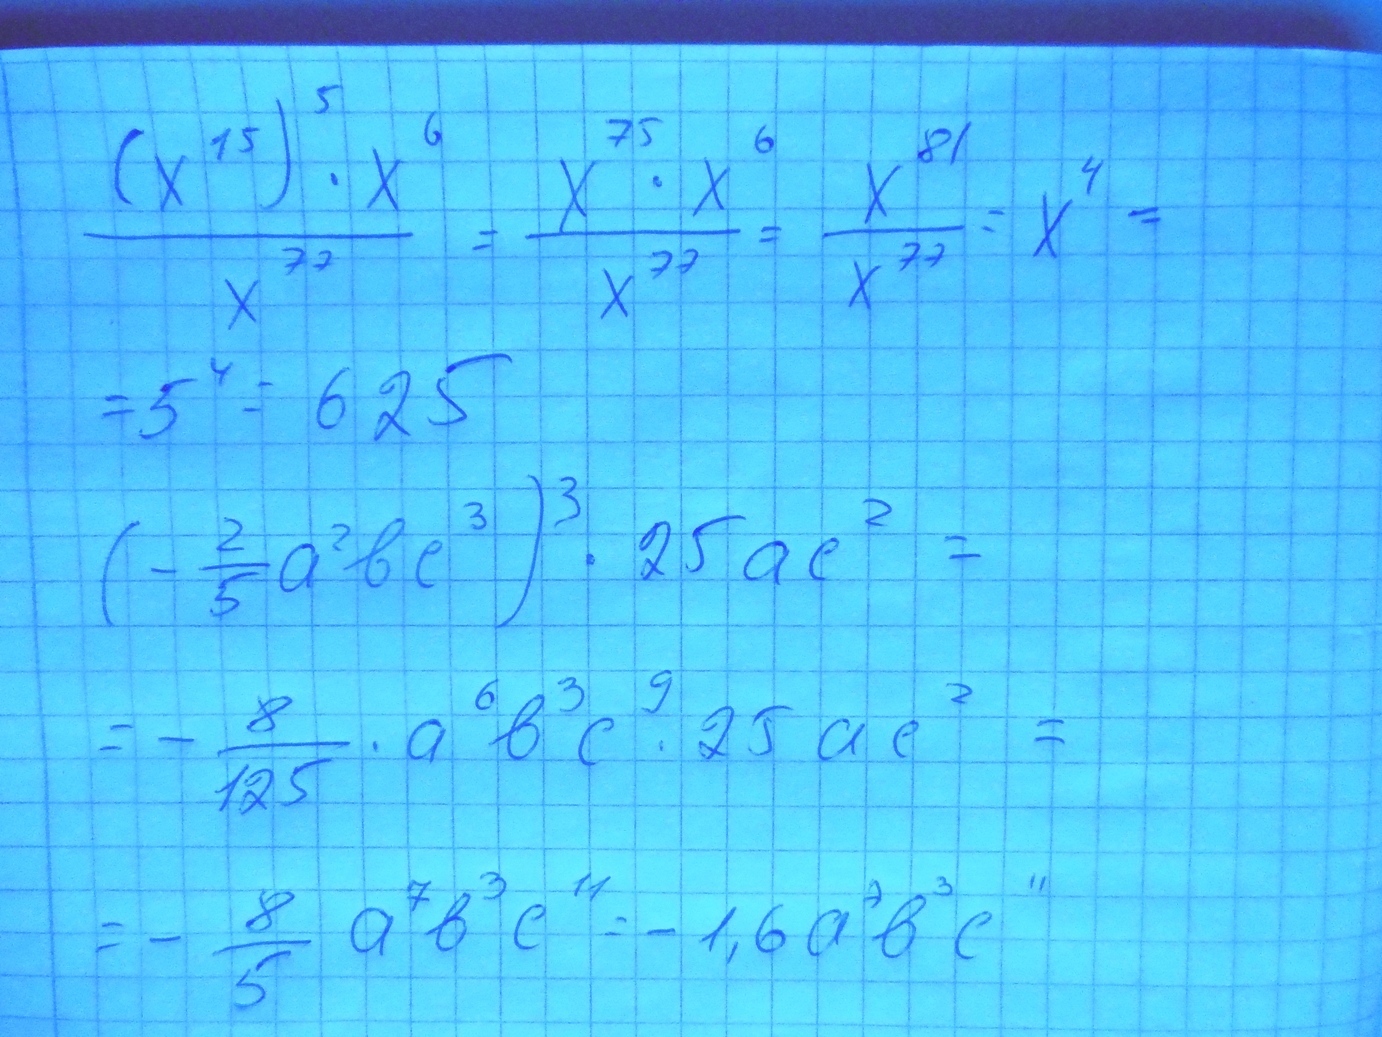 (x¹⁵)⁵ · x⁶ / x⁷⁷ = x⁷⁵ · x⁶ / x⁷⁷ = x⁸¹ / x⁷⁷ = x⁴ =
= 5⁴ = 625
(- 2/5 a²bc³)³ · 25ac² =
= - 8/125 · a⁶b³c⁹ · 25ac² =
= - 8/5 a⁷b³c¹¹ = - 1,6a⁷b³c¹¹